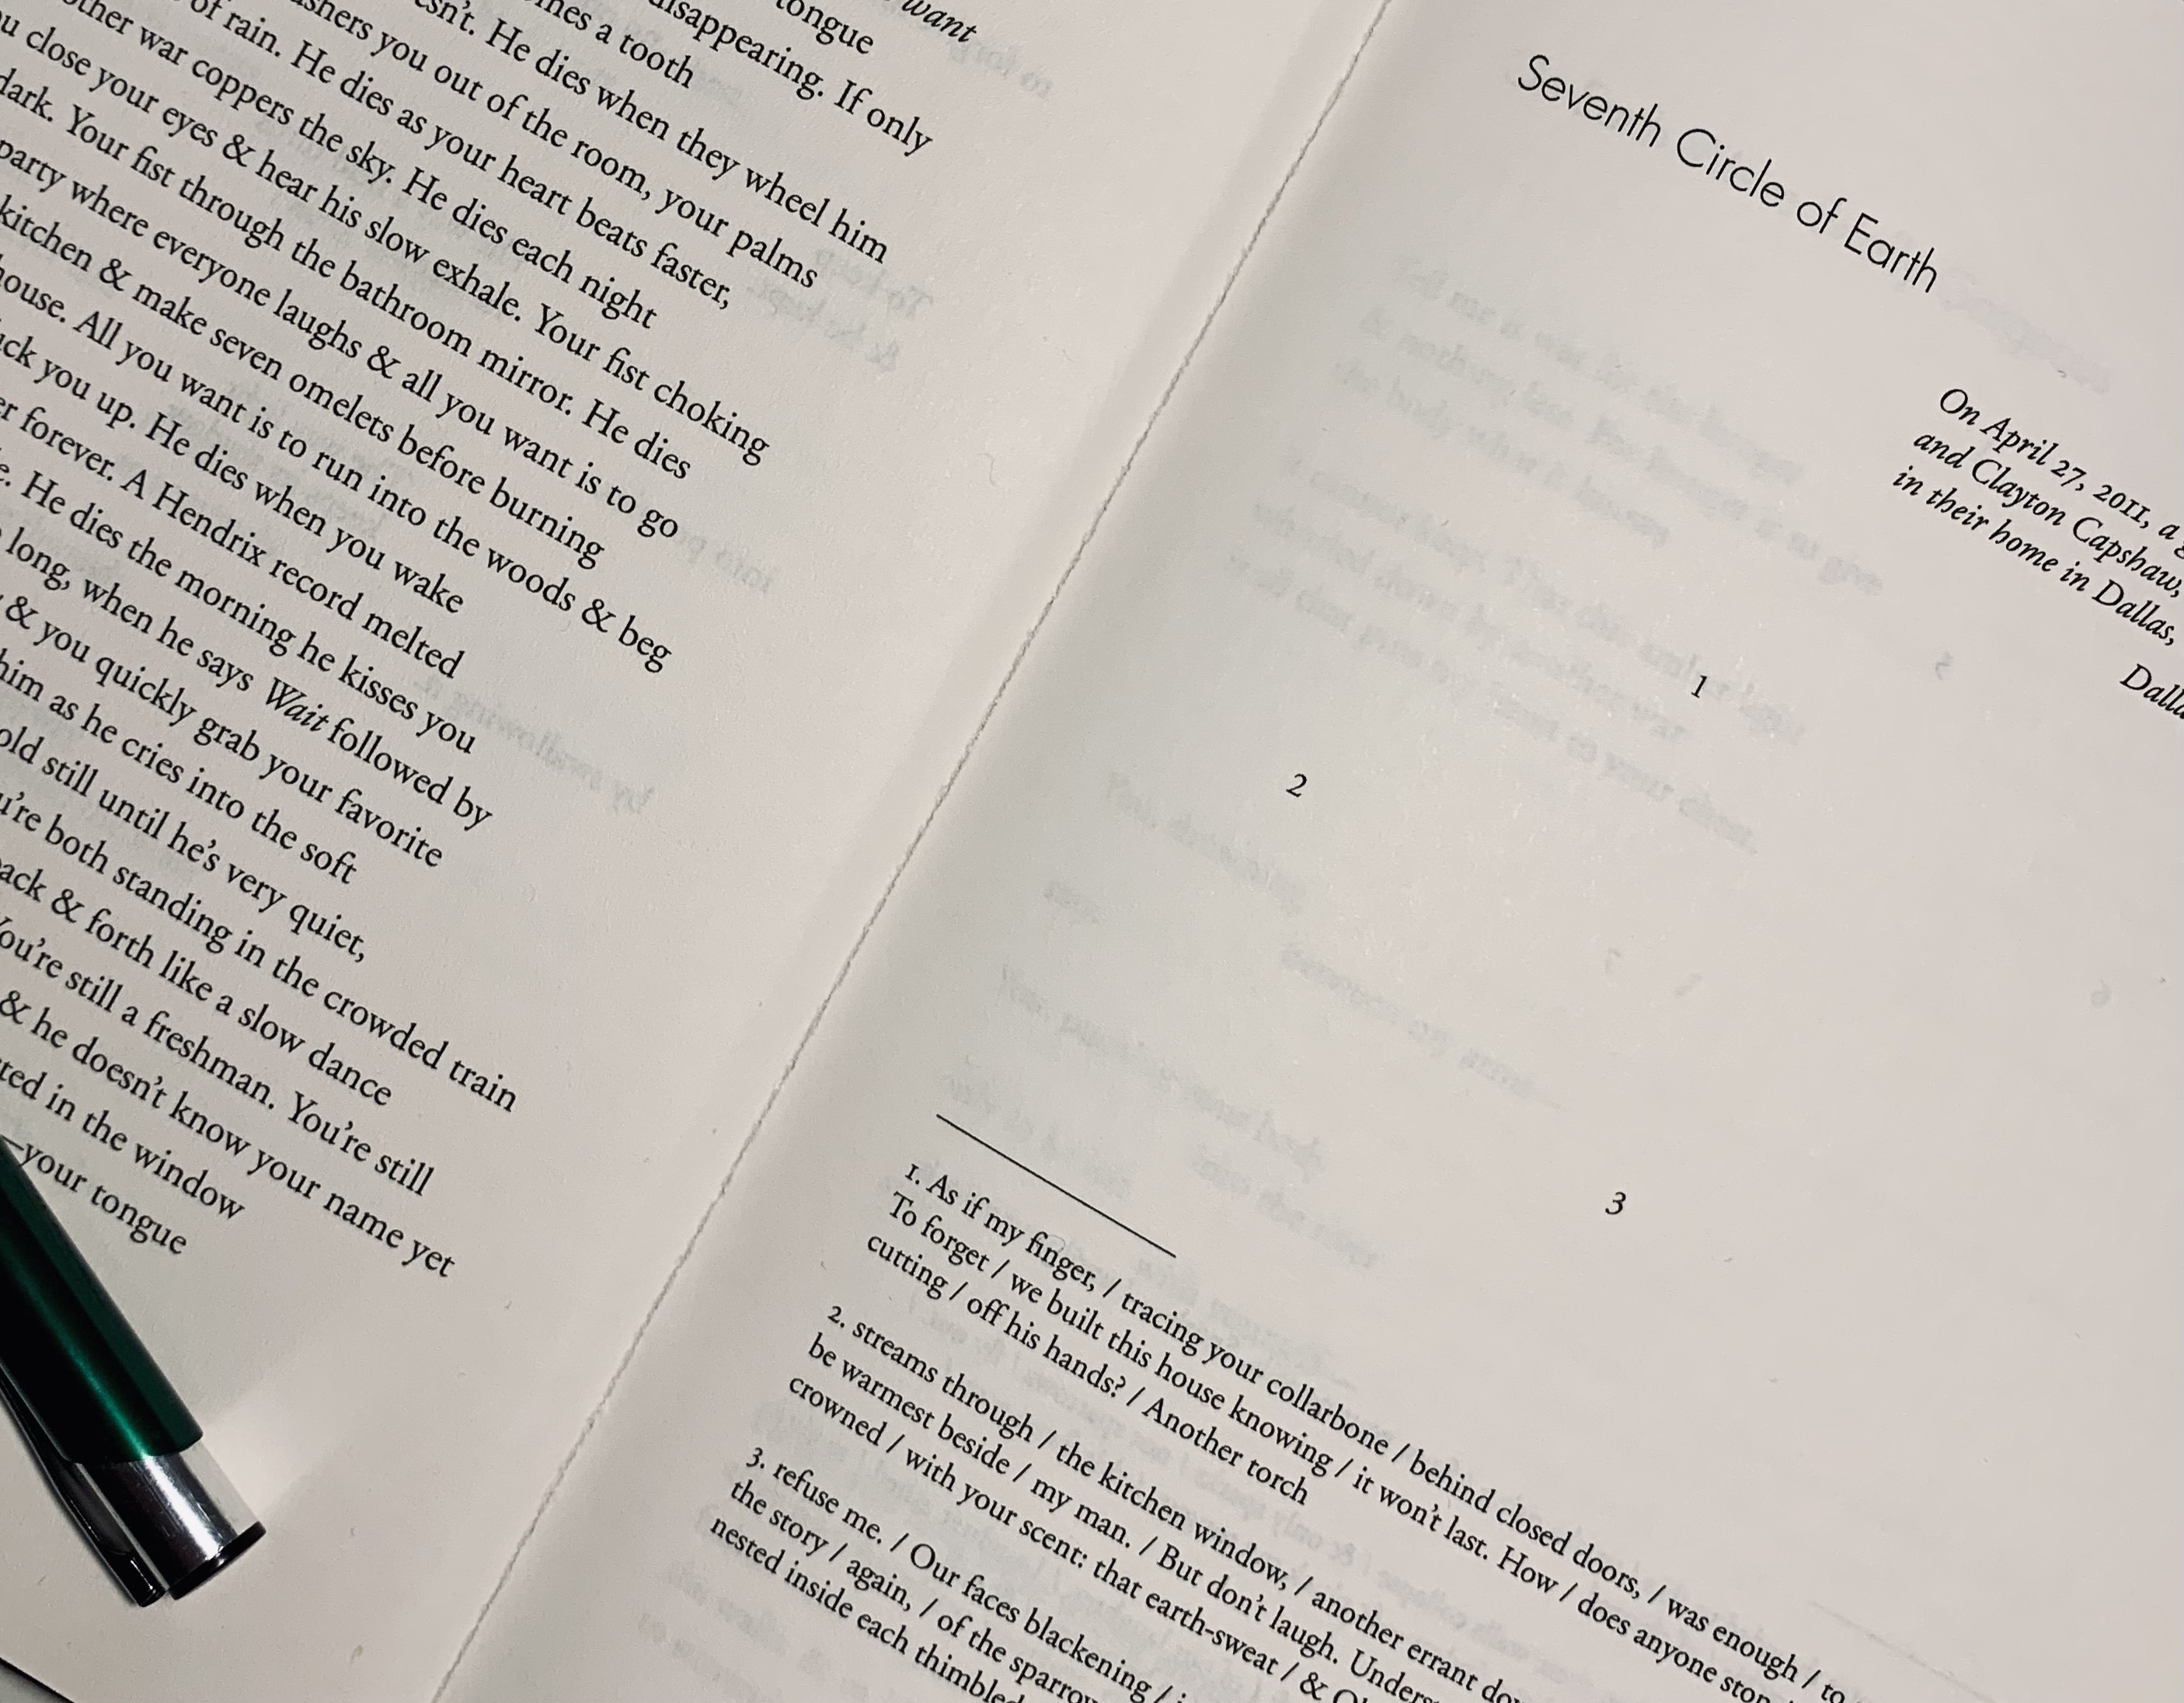 want
tongue
disappearing. If only
a tooth
He dies when they wheel him
you out of the room, your palms
of rain. He dies as your heart beats faster,
war coppers the sky. He dies each night
close your eyes & hear his slow exhale. Your fist choking
dark. Your fist through the bathroom mirror. He dies
party where everyone laughs & all you want is to go
kitchen & make seven omelets before burning
house. All you want is to run into the woods & beg
you up. He dies when you wake
forever. A Hendrix record melted
He dies the morning he kisses you
long, when he says Wait followed by
& you quickly grab your favorite
him as he cries into the soft
still until he's very quiet,
both standing in the crowded train
& forth like a slow dance
You're still a freshman. You're still
& he doesn't know your name yet
in the window
—your tongue
Seventh Circle of Earth
On April 27, 2011, a
and Clayton Capshaw,
in their home in Dallas,
1
2
3
1. As if my finger, / tracing your collarbone / behind closed doors, / was enough / to
To forget / we built this house knowing / it won't last. How / does anyone stop
cutting / off his hands? / Another torch
2. streams through / the kitchen window, / another errant
be warmest beside / my man. / But don't laugh.
crowned / with your scent: that earth-sweat / &
3. refuse me. / Our faces blackening /
the story / again, / of the
nested inside each